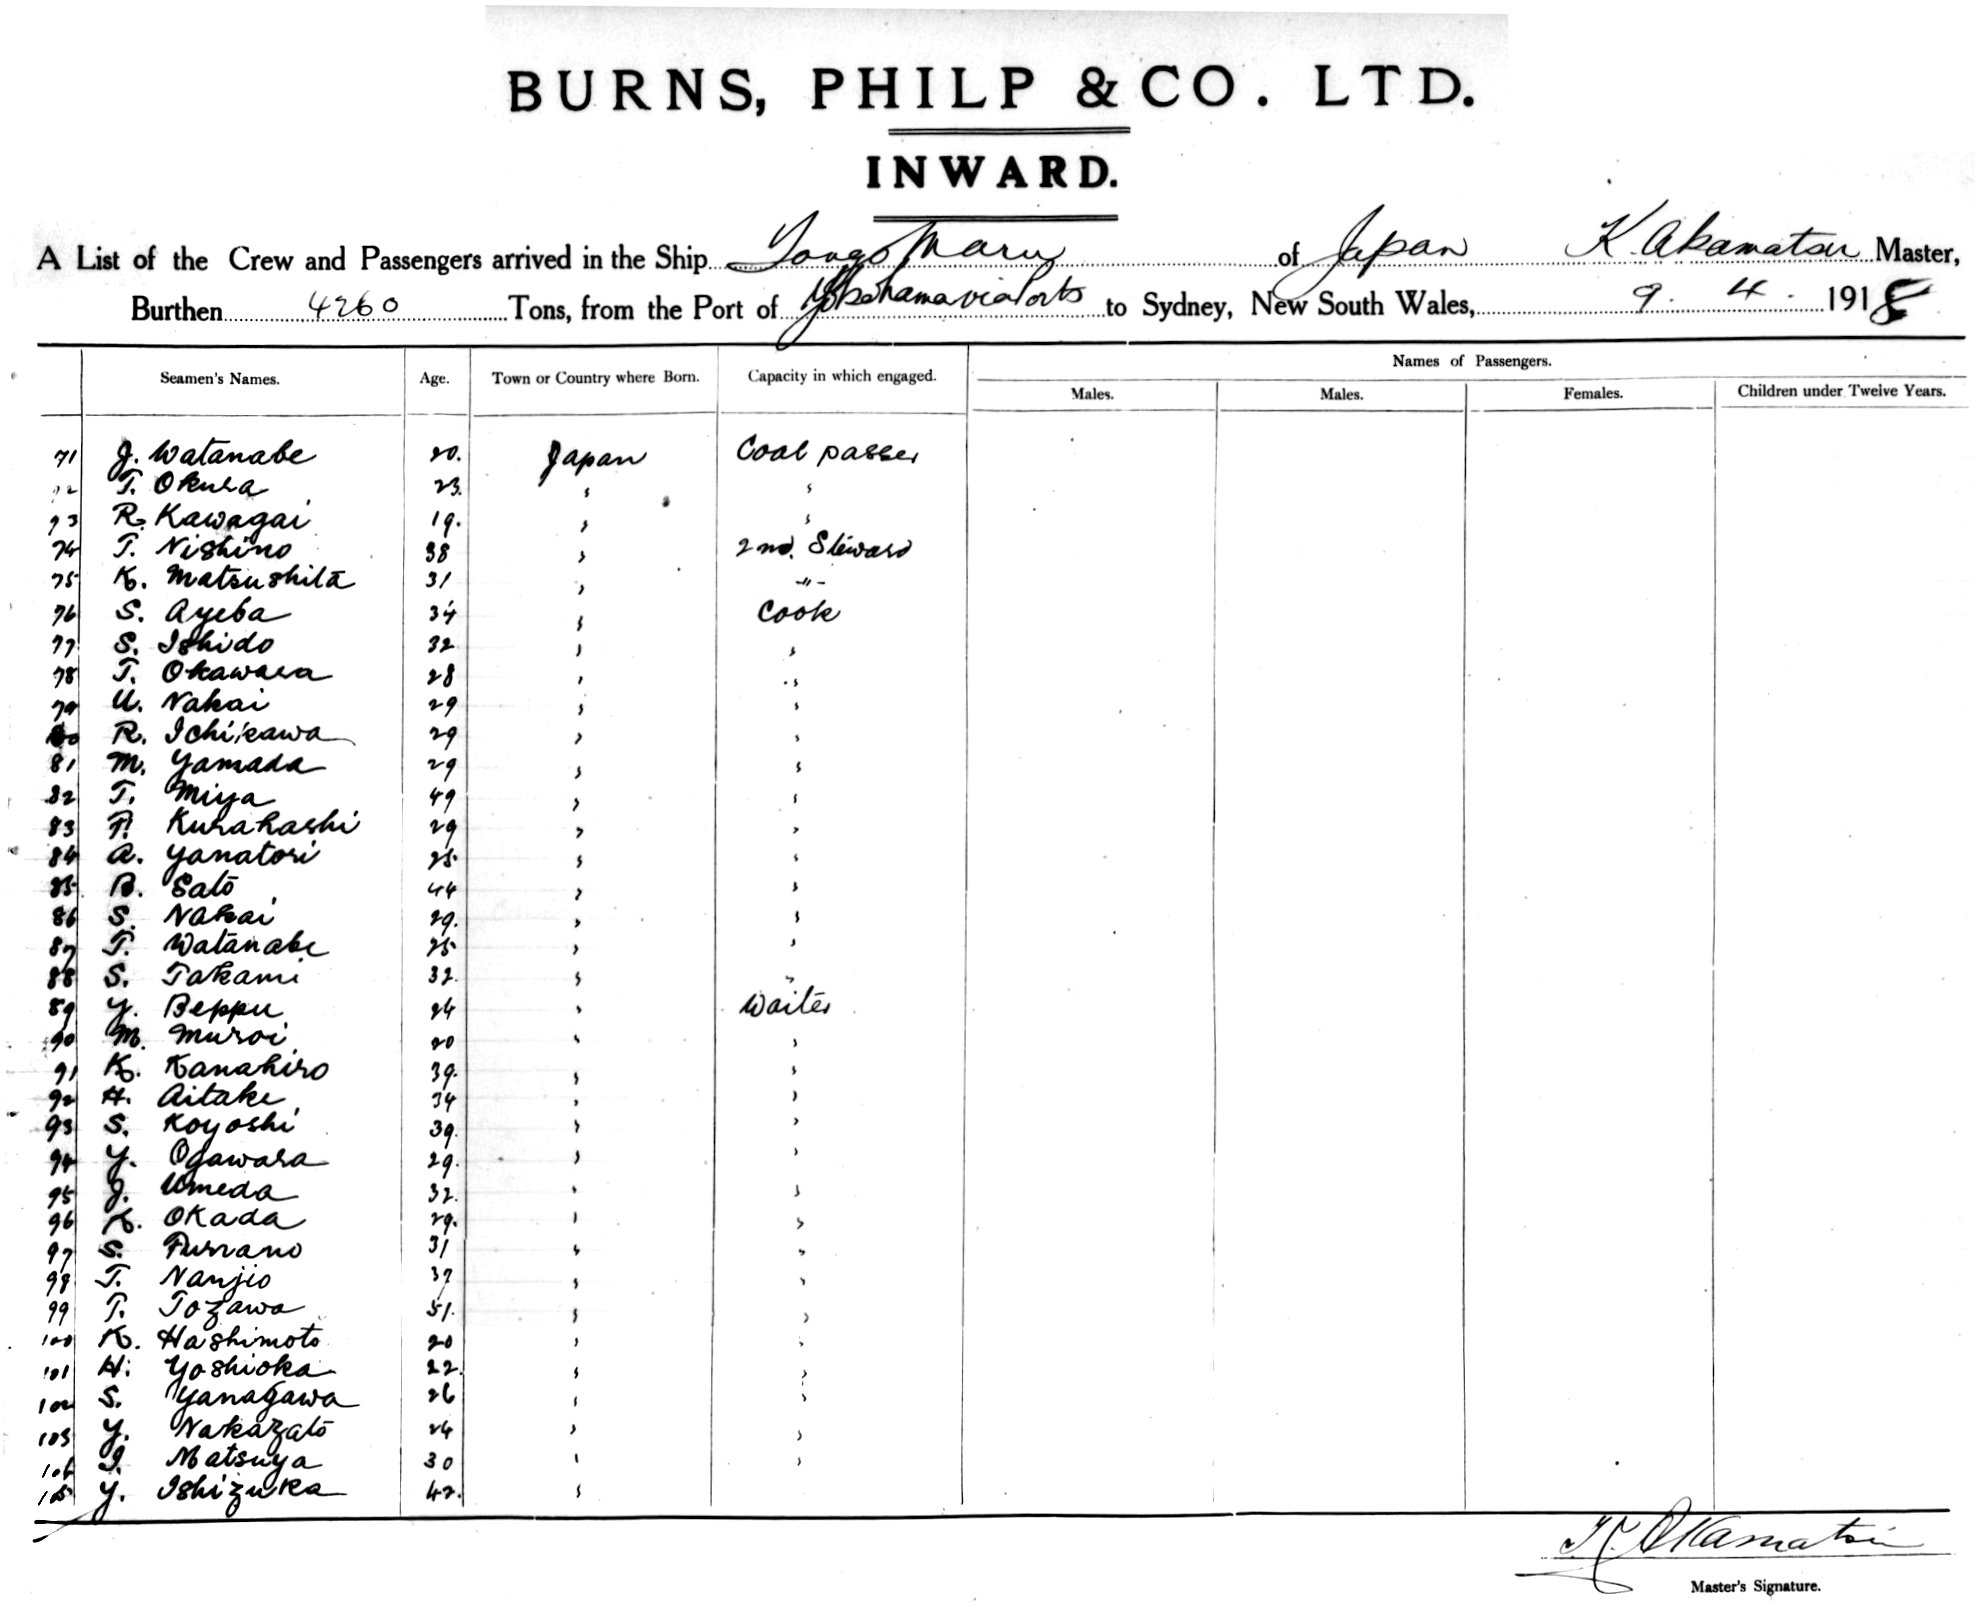 BURNS, PHILP & CO. LTD.
INWARD.
A List of the Crew and Passengers arrived in the Ship Tango Maru of Japan K. Akamatsu Master,
Burthen 4260 Tons, from the Port of Yokohama via Ports to Sydney, New South Wales, 9. 4. 1918
Names of Passengers.
Seamen's Names. Age. Town or Country where Born. Capacity in which engaged. Males. Males. Females. Children under Twelve Years.
71 J. Watanabe 20. Japan Coal passer
72 T. Okura 23. " "
73 R. Kawagai 19. " "
74 T. Nishino 38 " 2nd. Steward
75 K. Matsushita 31 " -"-
76 S. Ayeba 34 " Cook
77 S. Ishido 32 " "
78 T. Okawara 28 " "
79 U. Nakai 29 " "
80 R. Ichikawa 29 " "
81 M. Yamada 29 " "
82 T. Miya 49 " "
83 T. Kurahashi 29 " "
84 A. Yanatori 25 " "
85 B. Sato 44 " "
86 S. Nakai 29. " "
87 T. Watanabe 25 " "
88 S. Takami 32. " "
89 Y. Beppu 24 " Waiter
90 M. Muroi 20 " "
91 K. Kanahiro 39. " "
92 H. Aitake 34 " "
93 S. Koyoshi 39. " "
94 Y. Ogawara 29. " "
95 J. Umeda 32. " "
96 K. Okada 29. " "
97 S. Furrano 31 " "
98 T. Nanjio 37 " "
99 T. Tozawa 51. " "
100 K. Hashimoto 20 " "
101 H. Yoshioka 22. " "
102 S. Yanagawa 26 " "
103 Y. Nakazato 24 " "
104 I. Matsuya 30 " "
105 Y. Ishizuka 42. "
K. Akamatsu
Master's Signature.